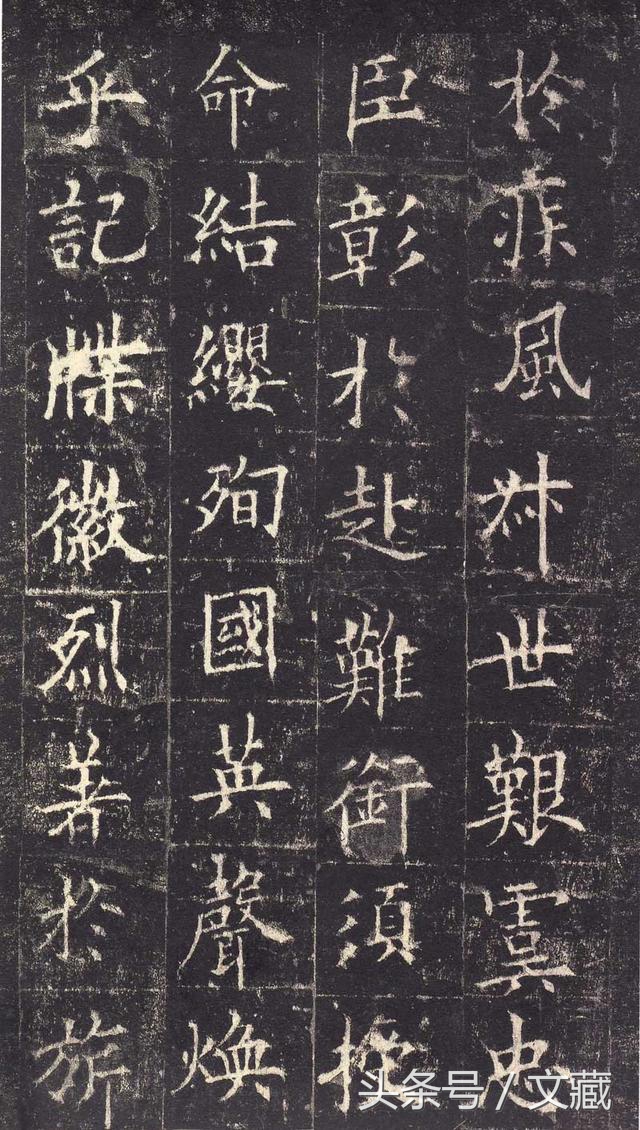 於疾風叔世艱虞忠
臣彰於赴難銜須授
命結纓殉國英聲煥
乎記牒徽烈著於旂
头条号 / 文藏